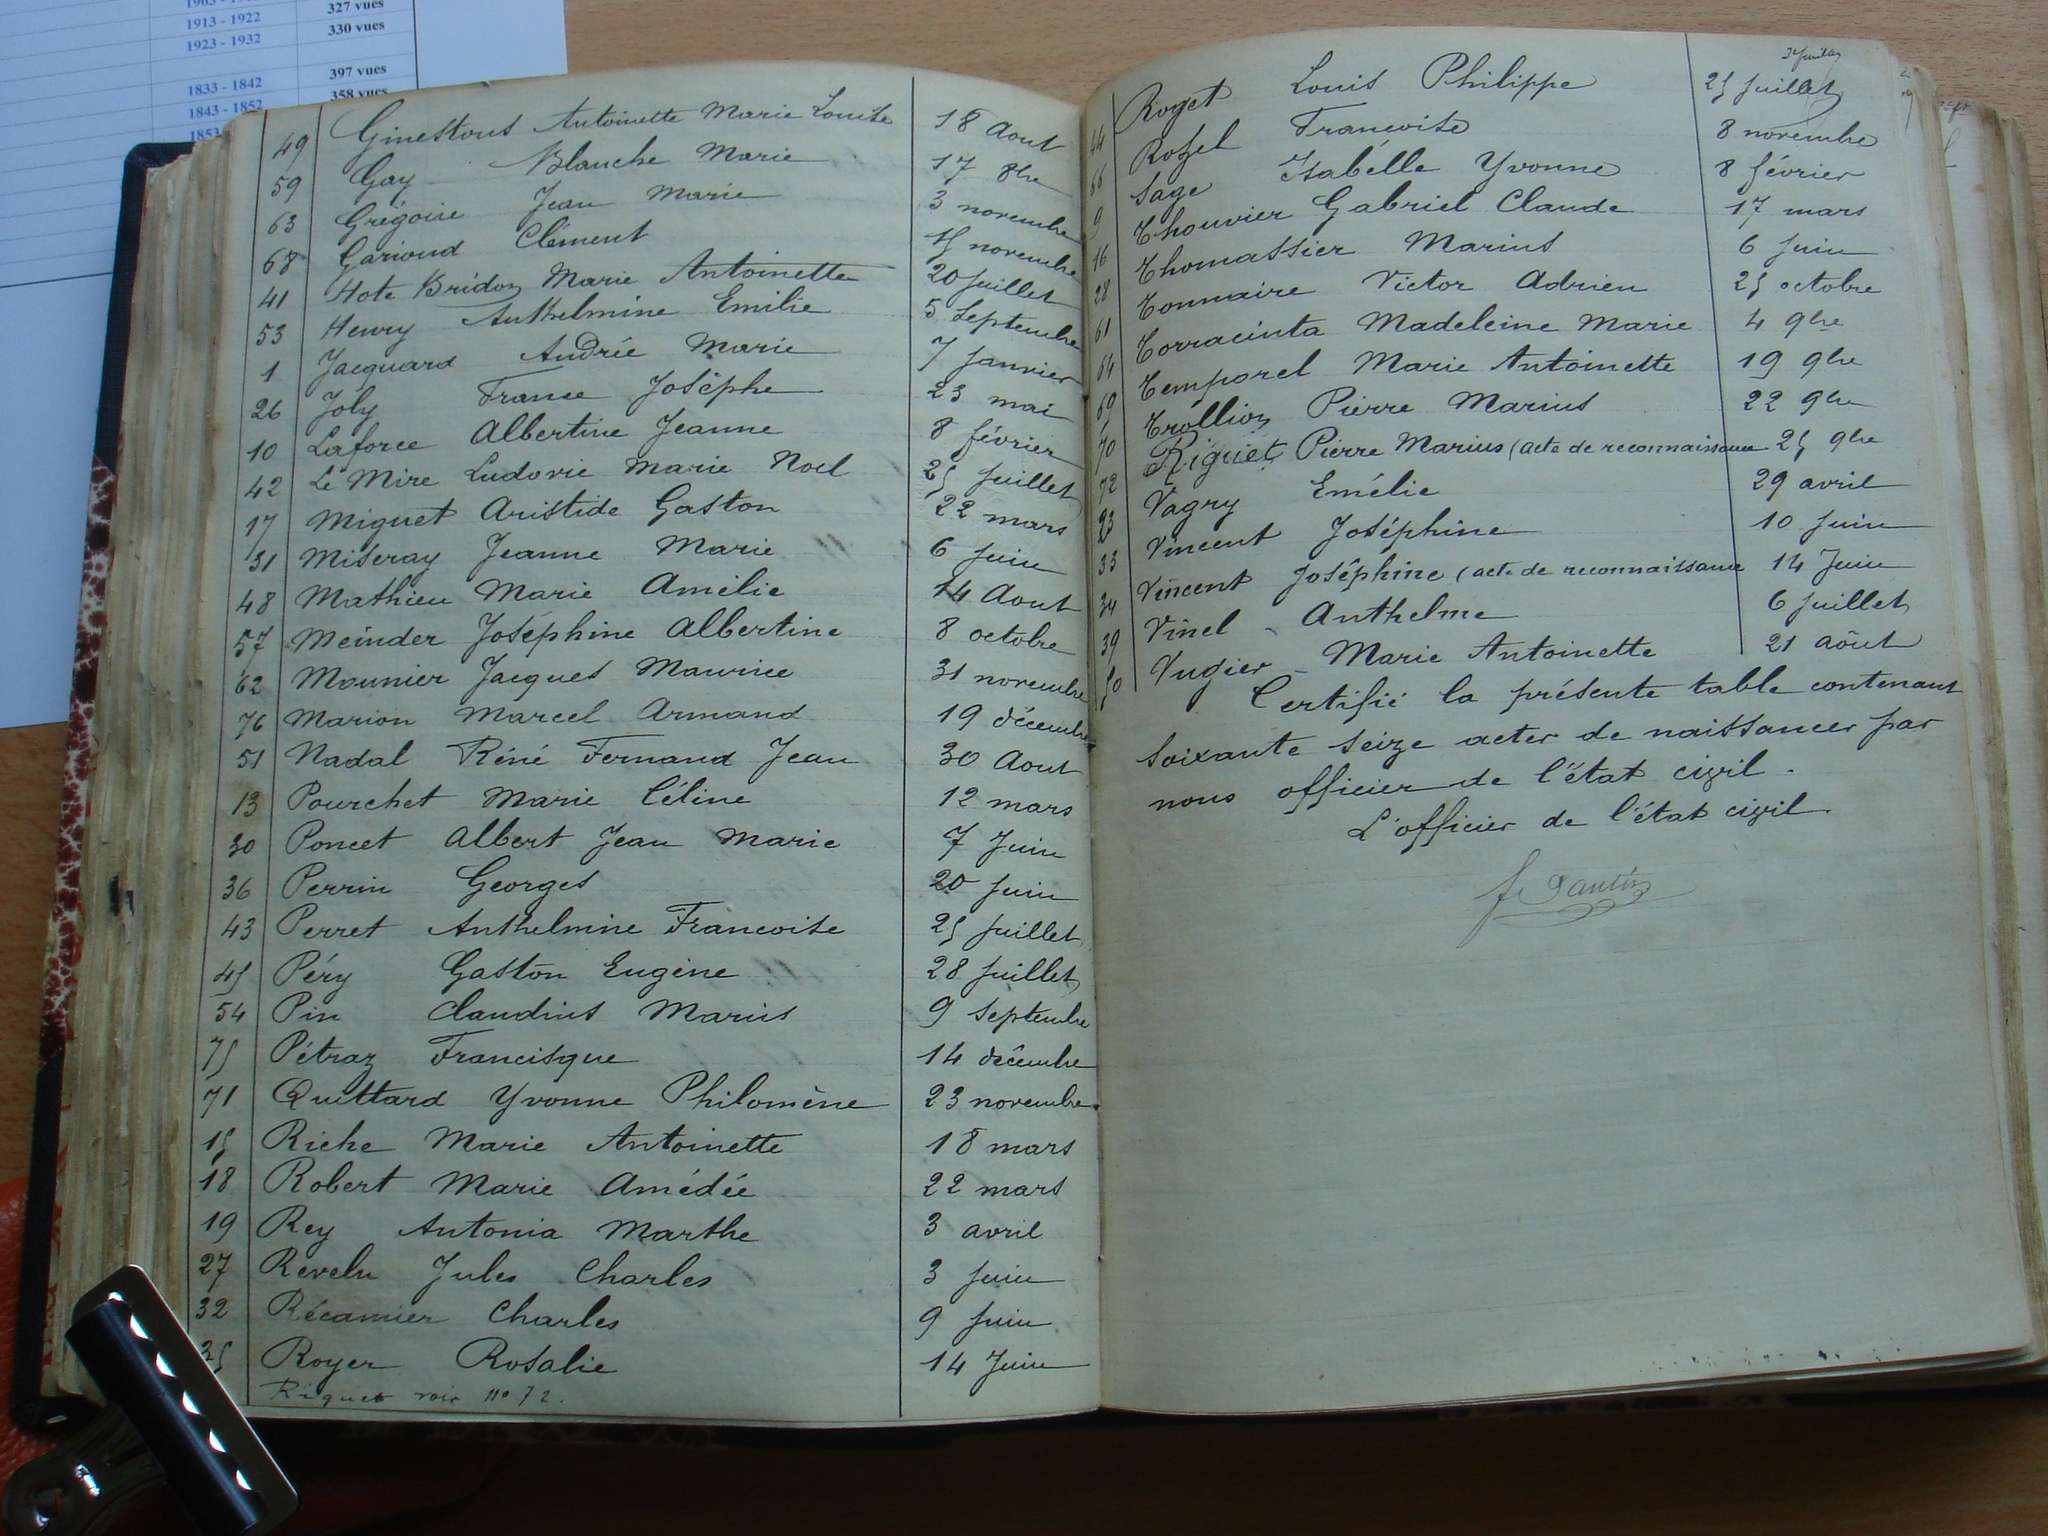 327 vues
1913 - 1922 330 vues
1923 - 1932
397 vues
1833 - 1842 358 vues
1843 - 1852
1853
49 Ginestous Antoinette Marie Louise 18 Aout
59 Gay Blanche Marie 17 8bre
63 Grégoire Jean Marie 3 novembre
68 Garioud Clément 15 novembre
41 Hote Bridon Marie Antoinette 20 Juillet
53 Henry Anthelmine Emilie 5 Septembre
1 Jacquard Andrée Marie 7 Janvier
26 Joly France Joséphe 23 mai
10 Laforce Albertine Jeanne 8 février
42 Le Mire Ludovic Marie Noel 25 Juillet
17 Miguet Aristide Gaston 22 mars
31 Miseray Jeanne Marie 6 Juin
48 Mathieu Marie Amélie 14 Aout
57 Meinder Joséphine Albertine 8 octobre
62 Mounier Jacques Maurice 31 novembre
76 Marion Marcel Armand 19 décembre
51 Nadal Réné Fernand Jean 30 Aout
13 Pourchet Marie Céline 12 mars
30 Poncet Albert Jean Marie 7 Juin
36 Perrin Georges 20 Juin
43 Perret Anthelmine Francoise 25 Juillet
45 Péry Gaston Eugène 28 Juillet
54 Pin Claudius Marius 9 Septembre
75 Pétraz Francisque 14 décembre
71 Quittard Yvonne Philomène 23 novembre
15 Riche Marie Antoinette 18 mars
18 Robert Marie Amédée 22 mars
19 Rey Antonia Marthe 3 avril
27 Revelu Jules Charles 3 Juin
32 Récamier Charles 9 Juin
35 Royer Rosalie 14 Juin
Riguet voir No 72.
44 Roget Louis Philippe 25 Juillet
66 Rozel Francoise 8 novembre
9 Sage Isabelle Yvonne 8 février
16 Thouvier Gabriel Claude 17 mars
28 Thomassier Marius 6 Juin
61 Tonnaire Victor Adrien 25 octobre
64 Torracinta Madeleine Marie 4 9bre
69 Temporel Marie Antoinette 19 9bre
70 Trollion Pierre Marius 22 9bre
72 Riguet Pierre Marius (acte de reconnaissance 25 9bre
23 Vagry Emélie 29 avril
33 Vincent Joséphine 10 Juin
34 Vincent Joséphine (acte de reconnaissance 14 Juin
39 Vinel - Anthelme 6 Juillet
50 Vugier - Marie Antoinette 21 aôut
Certifié la présente table contenant
soixante seize actes de naissances par
nous officier de l'état civil.
L'officier de l'état civil